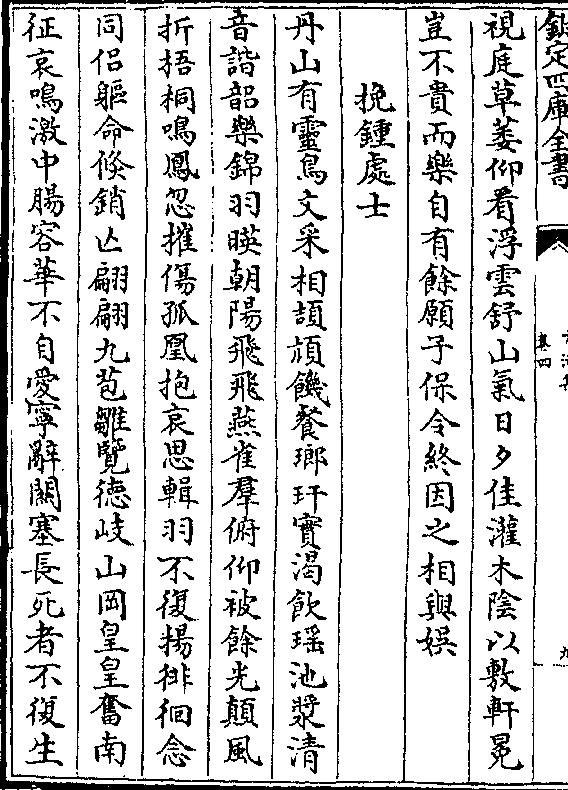 欽定四庫全書
卷四
視庭草萎仰看浮雲舒山氣日夕佳灌木陰以敷軒冕
豈不貴而樂自有餘願子保令終因之相與娱
挽鍾處士
丹山有靈鳥文采相頡頏饑餐瑯玕實渴飲瑶池漿清
音諧韶樂錦羽暎朝陽飛飛燕雀羣俯仰被餘光顛風
折梧桐鳴鳳忽摧傷孤凰抱哀思輯羽不復揚徘徊念
同侣軀命倐銷亡翩翩九苞雛覽徳岐山岡皇皇奮南
征哀鳴激中腸容華不自愛寧辭關塞長死者不復生